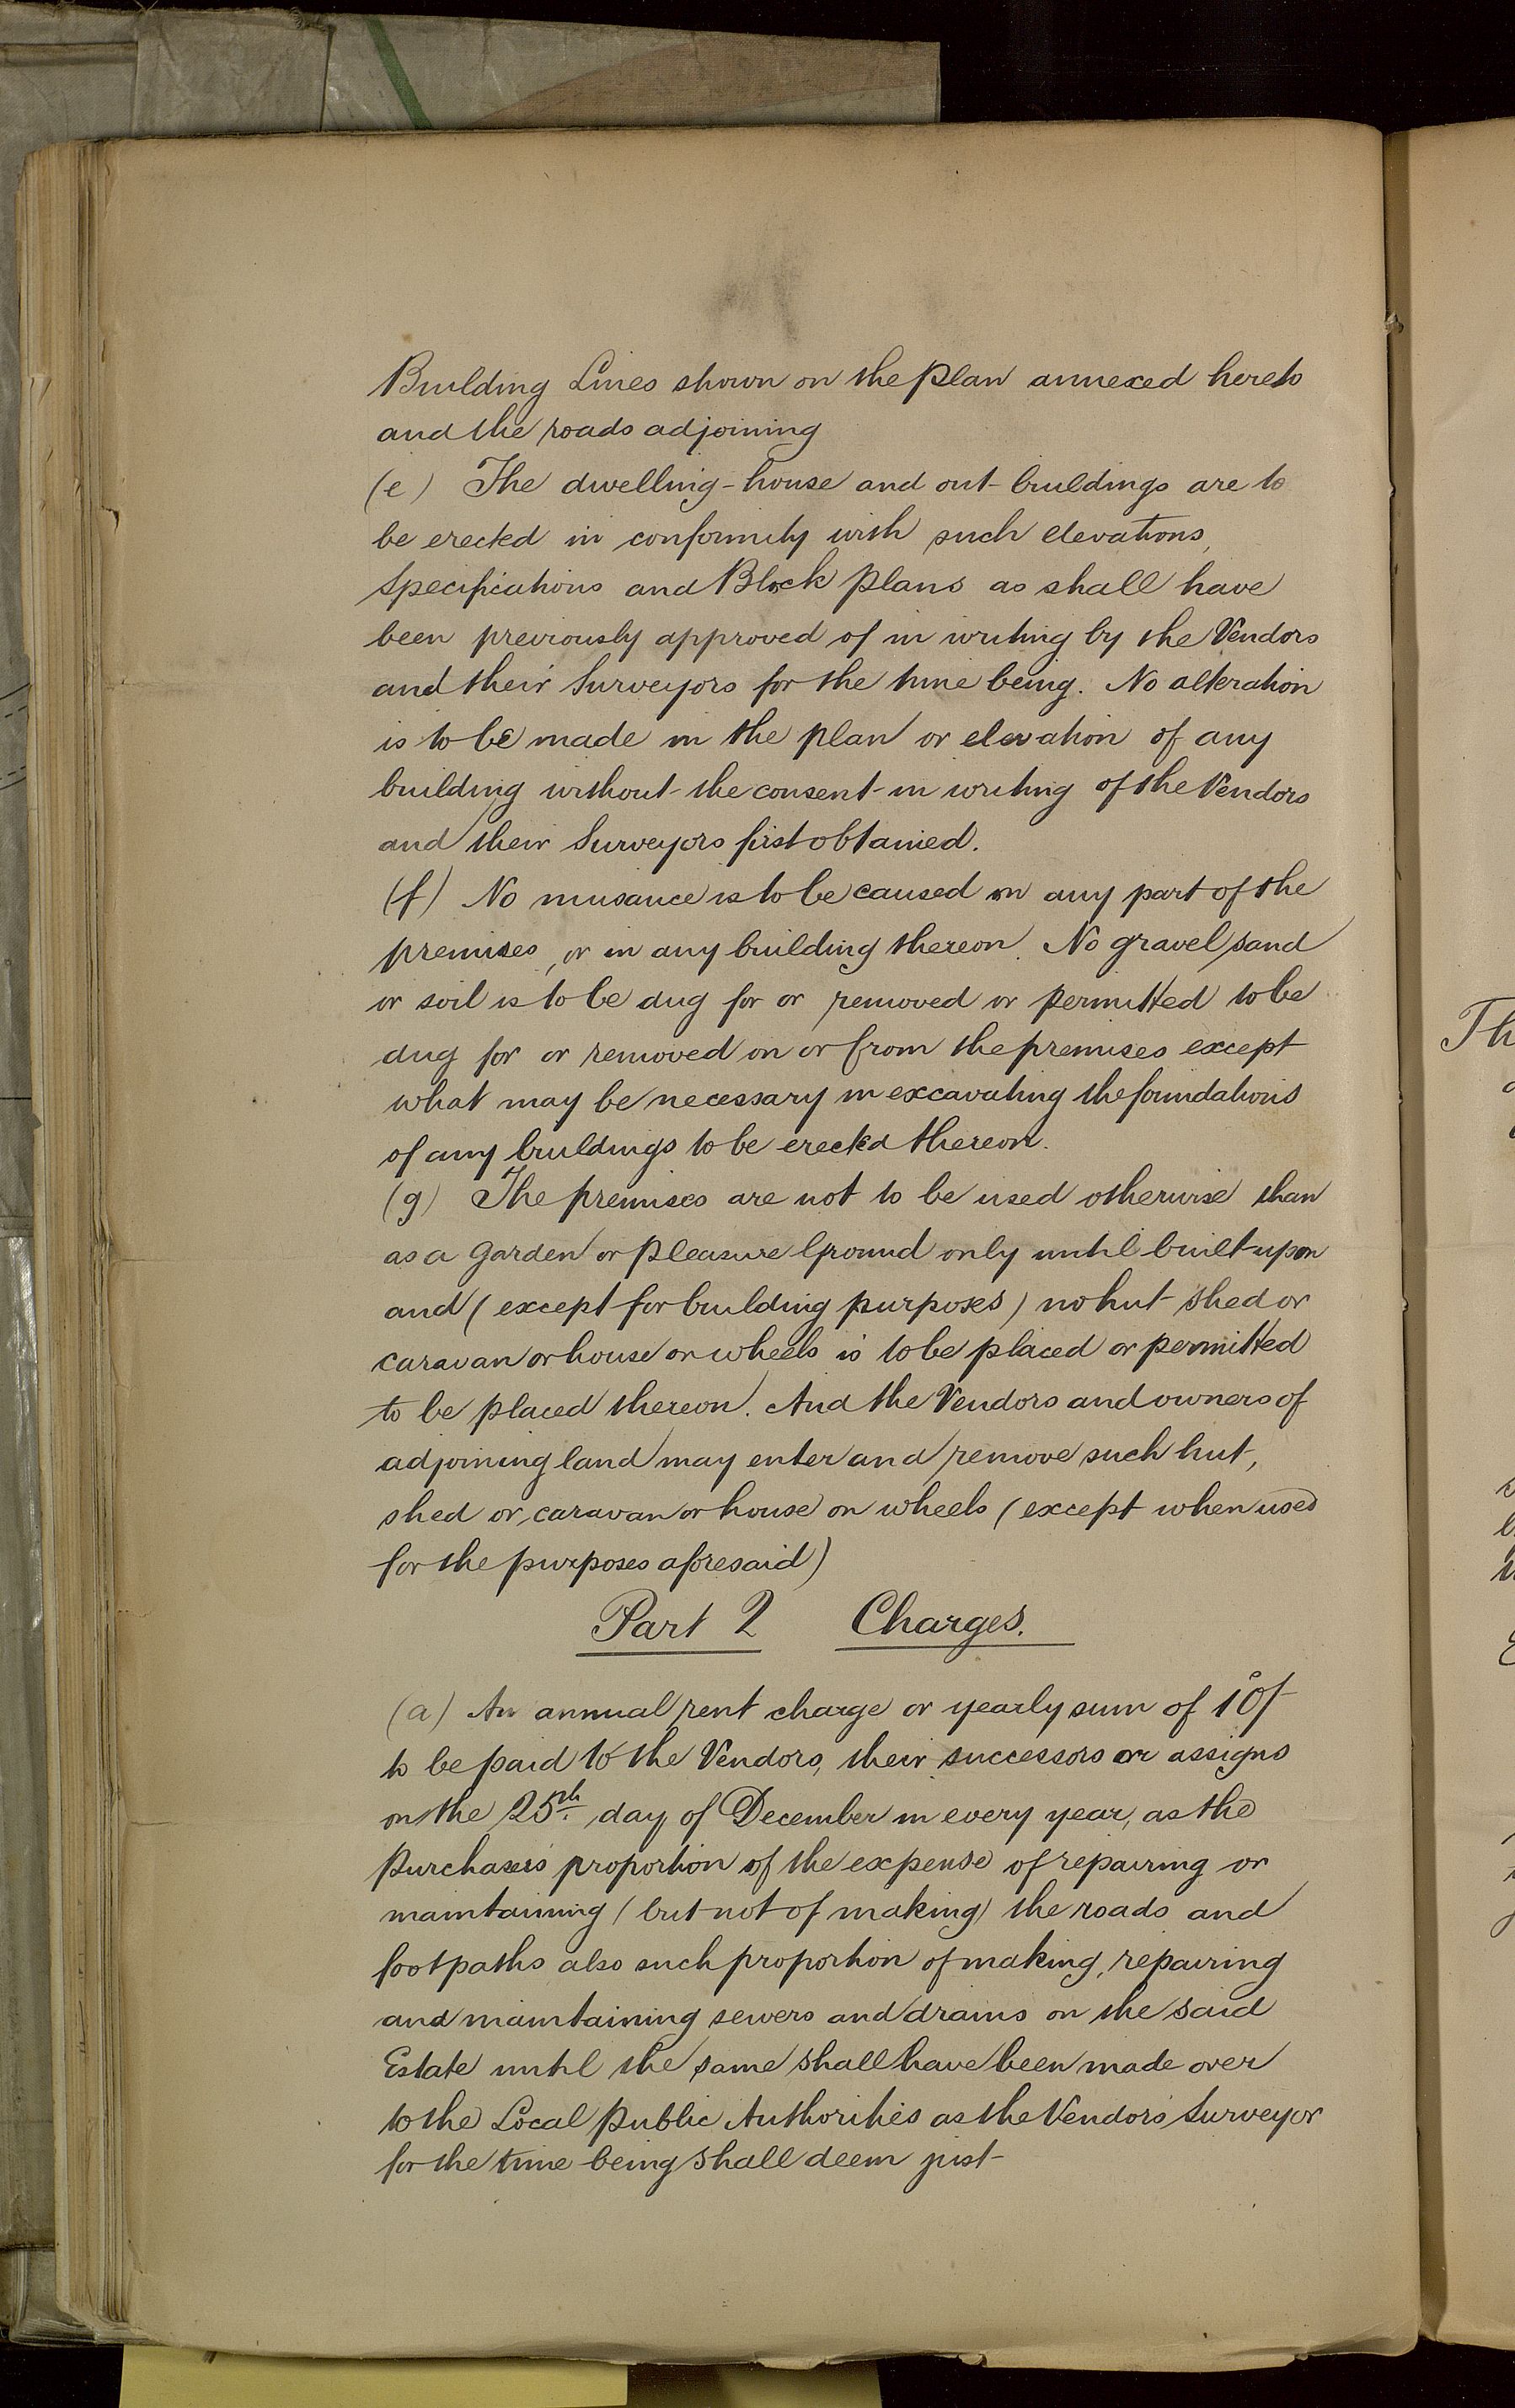 Building Lines shown on the Plan annexed hereto
and the roads adjoining
(e) The dwelling-house and out-buildings are to
be erected in conformity with such elevations,
Specifications and Block Plans as shall have
been previously approved of in writing by the Vendors
and their Surveyors for the time being. No alteration
is to be made in the plan or elevation of any
building without the consent in writing of the Vendors
and their Surveyors first obtained.
(f) No nuisance is to be caused on any part of the
premises, or in any building thereon. No gravel sand
or soil is to be dug for or removed or permitted to be
dug for or removed on or from the premises except
what may be necessary in excavating the foundations
of any buildings to be erected thereon.
(g) The premises are not to be used otherwise than
as a Garden or Pleasure Ground only until built upon
and (except for building purposes) no hut shed or
caravan or house on wheels is to be placed or permitted
to be placed thereon. And the Vendors and owners of
adjoining land may enter and remove such hut,
shed or, caravan or house on wheels (except when used
for the purposes aforesaid)
Part 2 Charges.
(a) An annual rent charge or yearly sum of 10/-
to be paid to the Vendors, their successors or assigns
on the 25th. day of December in every year, as the
Purchasers proportion of the expense of repairing or
maintaining (but not of making) the roads and
footpaths also such proportion of making, repairing
and maintaining sewers and drains on the said
Estate until the same shall have been made over
to the Local Public Authorities as the Vendors Surveyor
for the time being shall deem just
Th